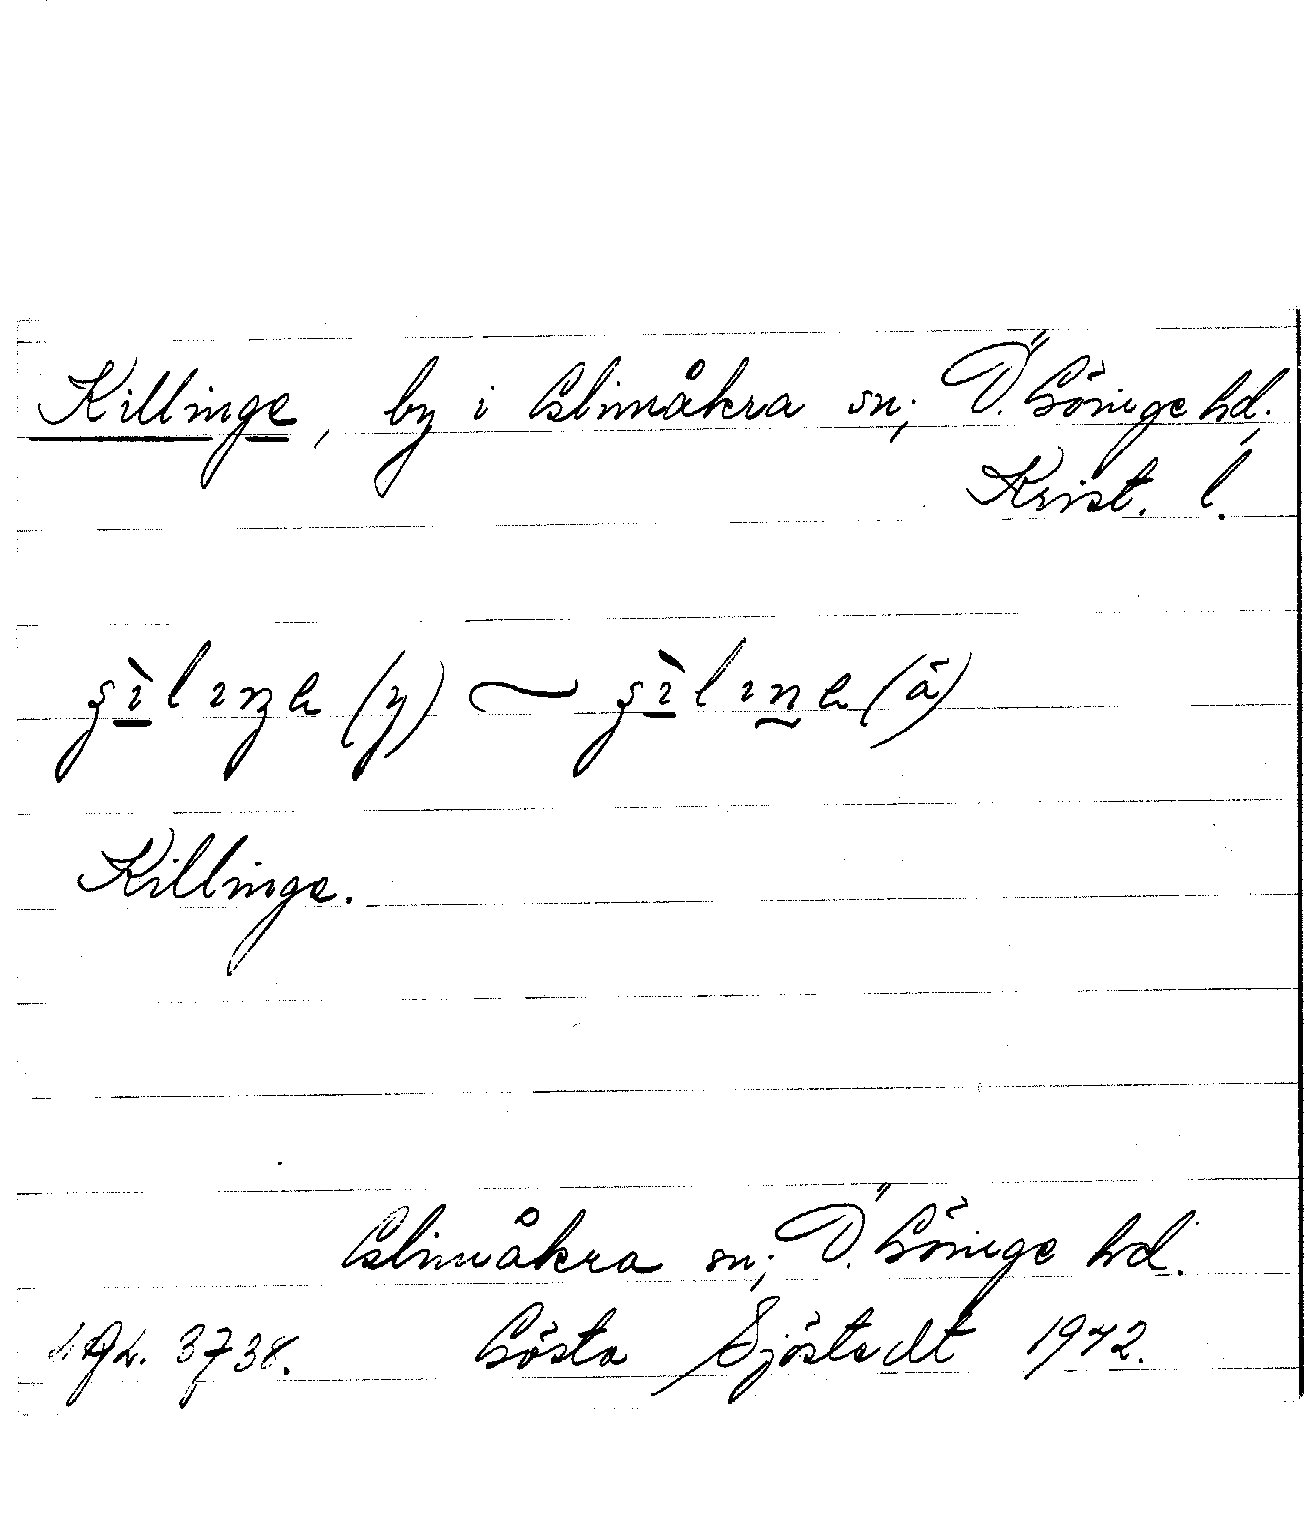 Killinge, by i Glimåkra sn; Ö. Göinge hd.,
Krist. l.
ʂìlıŋa (y) ~ ʂìlına (ä)
Killinge.
Glimåkra sn; Ö. Göinge hd.
3738. Gösta Sjöstedt 1942.